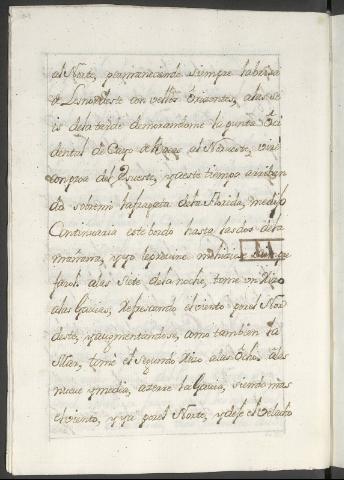 al Norte, permaneciendo siempre la briza
de Lesnordeste con vellos Orisontes, a las se
is de la tarde demorandome la punta Oci
dental de Cayo de Vacas al Nornoeste, viré
con proa del Sueste, y a este tiempo arriban
do sobre mi la fragata de la Florida, me dijo
Continuaria este bordo hasta las dos de la
mañana, y yo le previne
farol. a las Siete de la noche, tomé un Rizo
a las Gavias, Refrescando el viento por el Nor
deste, y augmentandose, como tambien la
Mar, tomé el Segundo Rizo a las Ocho. a las
nueve y media, aferre la Gavia, siendo mas
el viento, y ya por el Norte, y dése el Velacho